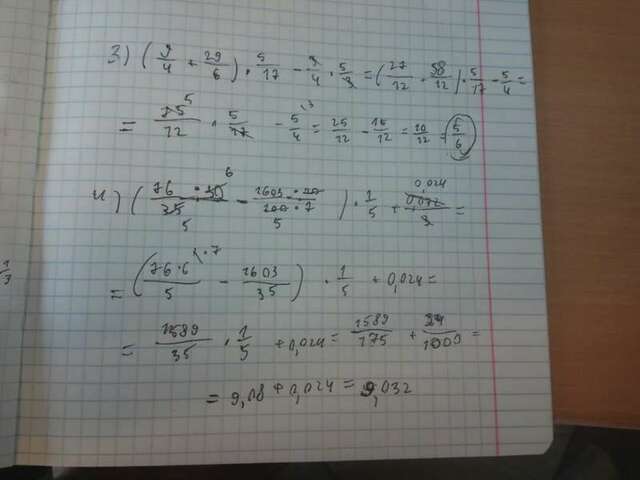 3) (9/4 + 29/6) · 5/17 - 9/4 · 5/9 = (27/12 + 58/12) · 5/17 - 5/4 =
= 85 5/12 · 5/17 - 5/4 3 = 25/12 - 15/12 = 10/12 = 5/6
4) (76 · 30 6/35 5 - 1603 · 20/100 · 7 5) · 1/5 + 0,072 0,024/3 =
= (76 · 6/5 · 7 - 1603/35) · 1/5 + 0,024 =
= 1589/35 · 1/5 + 0,024 = 1589/175 + 24/1000 =
= 9,08 + 0,024 = 9,032